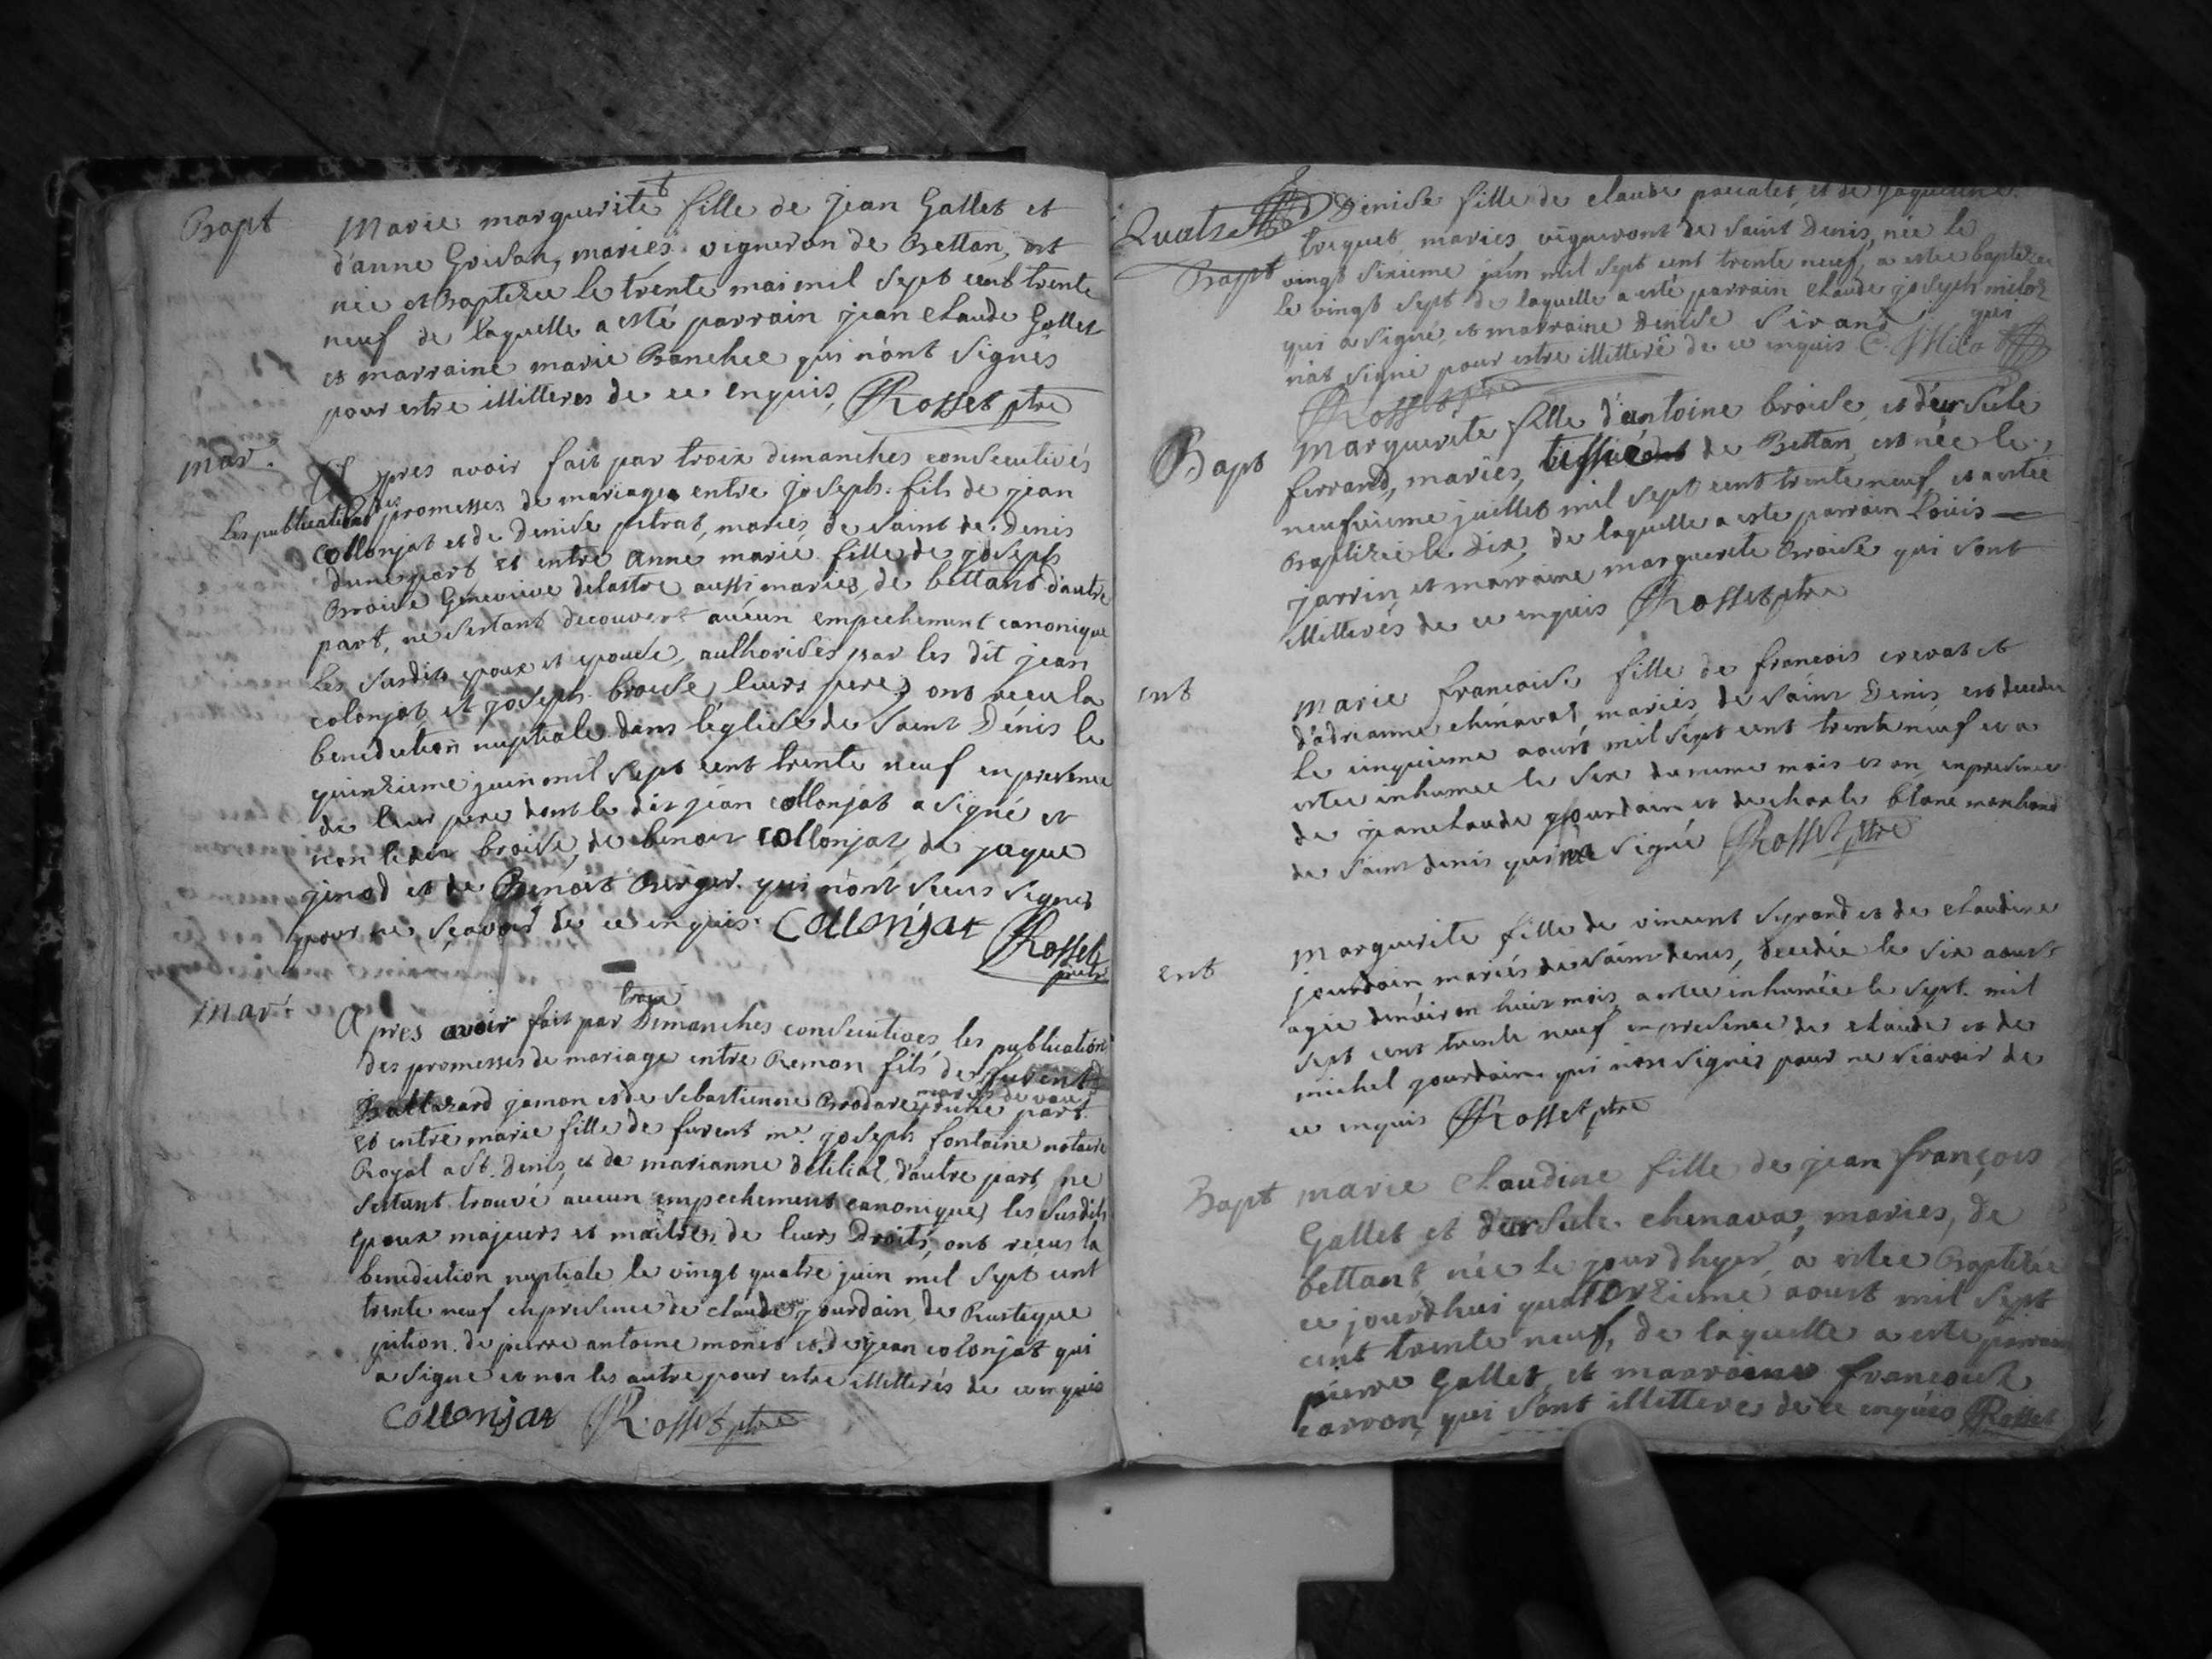 Bapt
Marie marguerite fille de jean Gallet et
d'anne Grisan, mariés vigneron de Bettan, est
née et Baptizee le trente mai mil sept cent trente
neuf de laquelle a esté parrain jean claude Gallet
et marraine marie Banchee qui n'ont signés
pour estre illitteres de ce enquis, Rosset ptre
mar.
Apres avoir fait par troix dimanches consecutives
les publications des promesses de mariage entre joseph fils de jean
collonjat et de Denise pitrat, mariés de saint de Denis
d'une part et entre anne marie fille de joseph
Broise Genevieve delastre aussi mariés, de bettant d'autre
part, ne s'estant decouvert aucun empechement canonique
les susdits epoux et epouse, authorisés par les dit jean
colonjat et joseph broise leurs peres ont receu la
benediction nuptiale dans l'église de saint Dénis le
quinzieme juin mil sept cent trente neuf en presence
de leur pere dont le dit jean collonjat a signé et
non ledit broise, de benoit collonjat, de jaque
jinod et de Benoit Berger qui n'ont sceus signer
pour ne sçavoir de ce enquis. Collonjat Rosset
ptre
mar.
Apres avoir fait par trois Dimanches consecutives les publication
des promesses de mariage entre Remon fils de furent
Baltazard jamon et de Sebastienne Brodare mariés de vaux d'une part
et entre marie fille de furent me. joseph fontaine notaire
Royal a St. Denis et de marianne delilia, d'autre part, ne
s'estant trouvé aucun empechement canonique, les susdits
epoux majeurs et maitres de leurs Droits, ont reçus la
benediction nuptiale le vingt quatre juin mil sept cent
trente neuf en presence de claude jourdain, de Rustique
jution. de pierre antoine monet et de jean colonjat qui
a signe et non les autre pour estre illitterés de ce enquis
Collonjat Rosset ptre
Denise fille de claude pascalet, et de jaqueline
Bapt
trequet mariés vigneront de saint Denis, née le
vingt sixieme juin mil sept cent trente neuf, a estee baptizee
le vingt sept de laquelle a esté parrain claude joseph miloz
qui a signé, et marraine denise Sirand qui
n'at signé pour estre illitteré de ce enquis C. J Milo
Rosset ptre
Bapt
Marguerite fille d'antoine broise et d'ursule
ferrand, mariés, de Bettan est née le
neufvieme juillet mil sept cent trente neuf et a estee
Baptizée le Dix, de laquelle a este parrain Louis
jarrin et marraine marguerite Broise qui sont
illitterés de ce enquis Rosset ptre
ent
marie francoise fille de francois crevat et
d'adrianne chinavat mariés de saint Denis est decedee
le cinquieme aoust mil sept cent trente neuf et a
estee inhumee le six du meme mois et an en presence
de jean claude jourdain et de charle blanc marchand
de saint denis qui na signé Rosset ptre
ent
Marguerite fille de vincent syrand et de claudine
jourdain mariés de saint denis, decedée le six aoust
agée d'environ huit mois a estee inhumée le sept mil
sept cent trente neuf en presence de claude et de
michel jourdain qui n'on signés pour ne sçavoir de
ce enquis Rosset ptre
Bapt
marie claudine fille de jean françois
Gallet et d'ursule chenava, mariés, de
bettant née le jour d'hyer, a estee Baptizée
ce jourdhui quatorzieme aoust mil sept
cent trente neuf, de laquelle a este parrain
pierre Gallet et marraine francoise
carron, qui sont illitteres de ce enquis Rosset